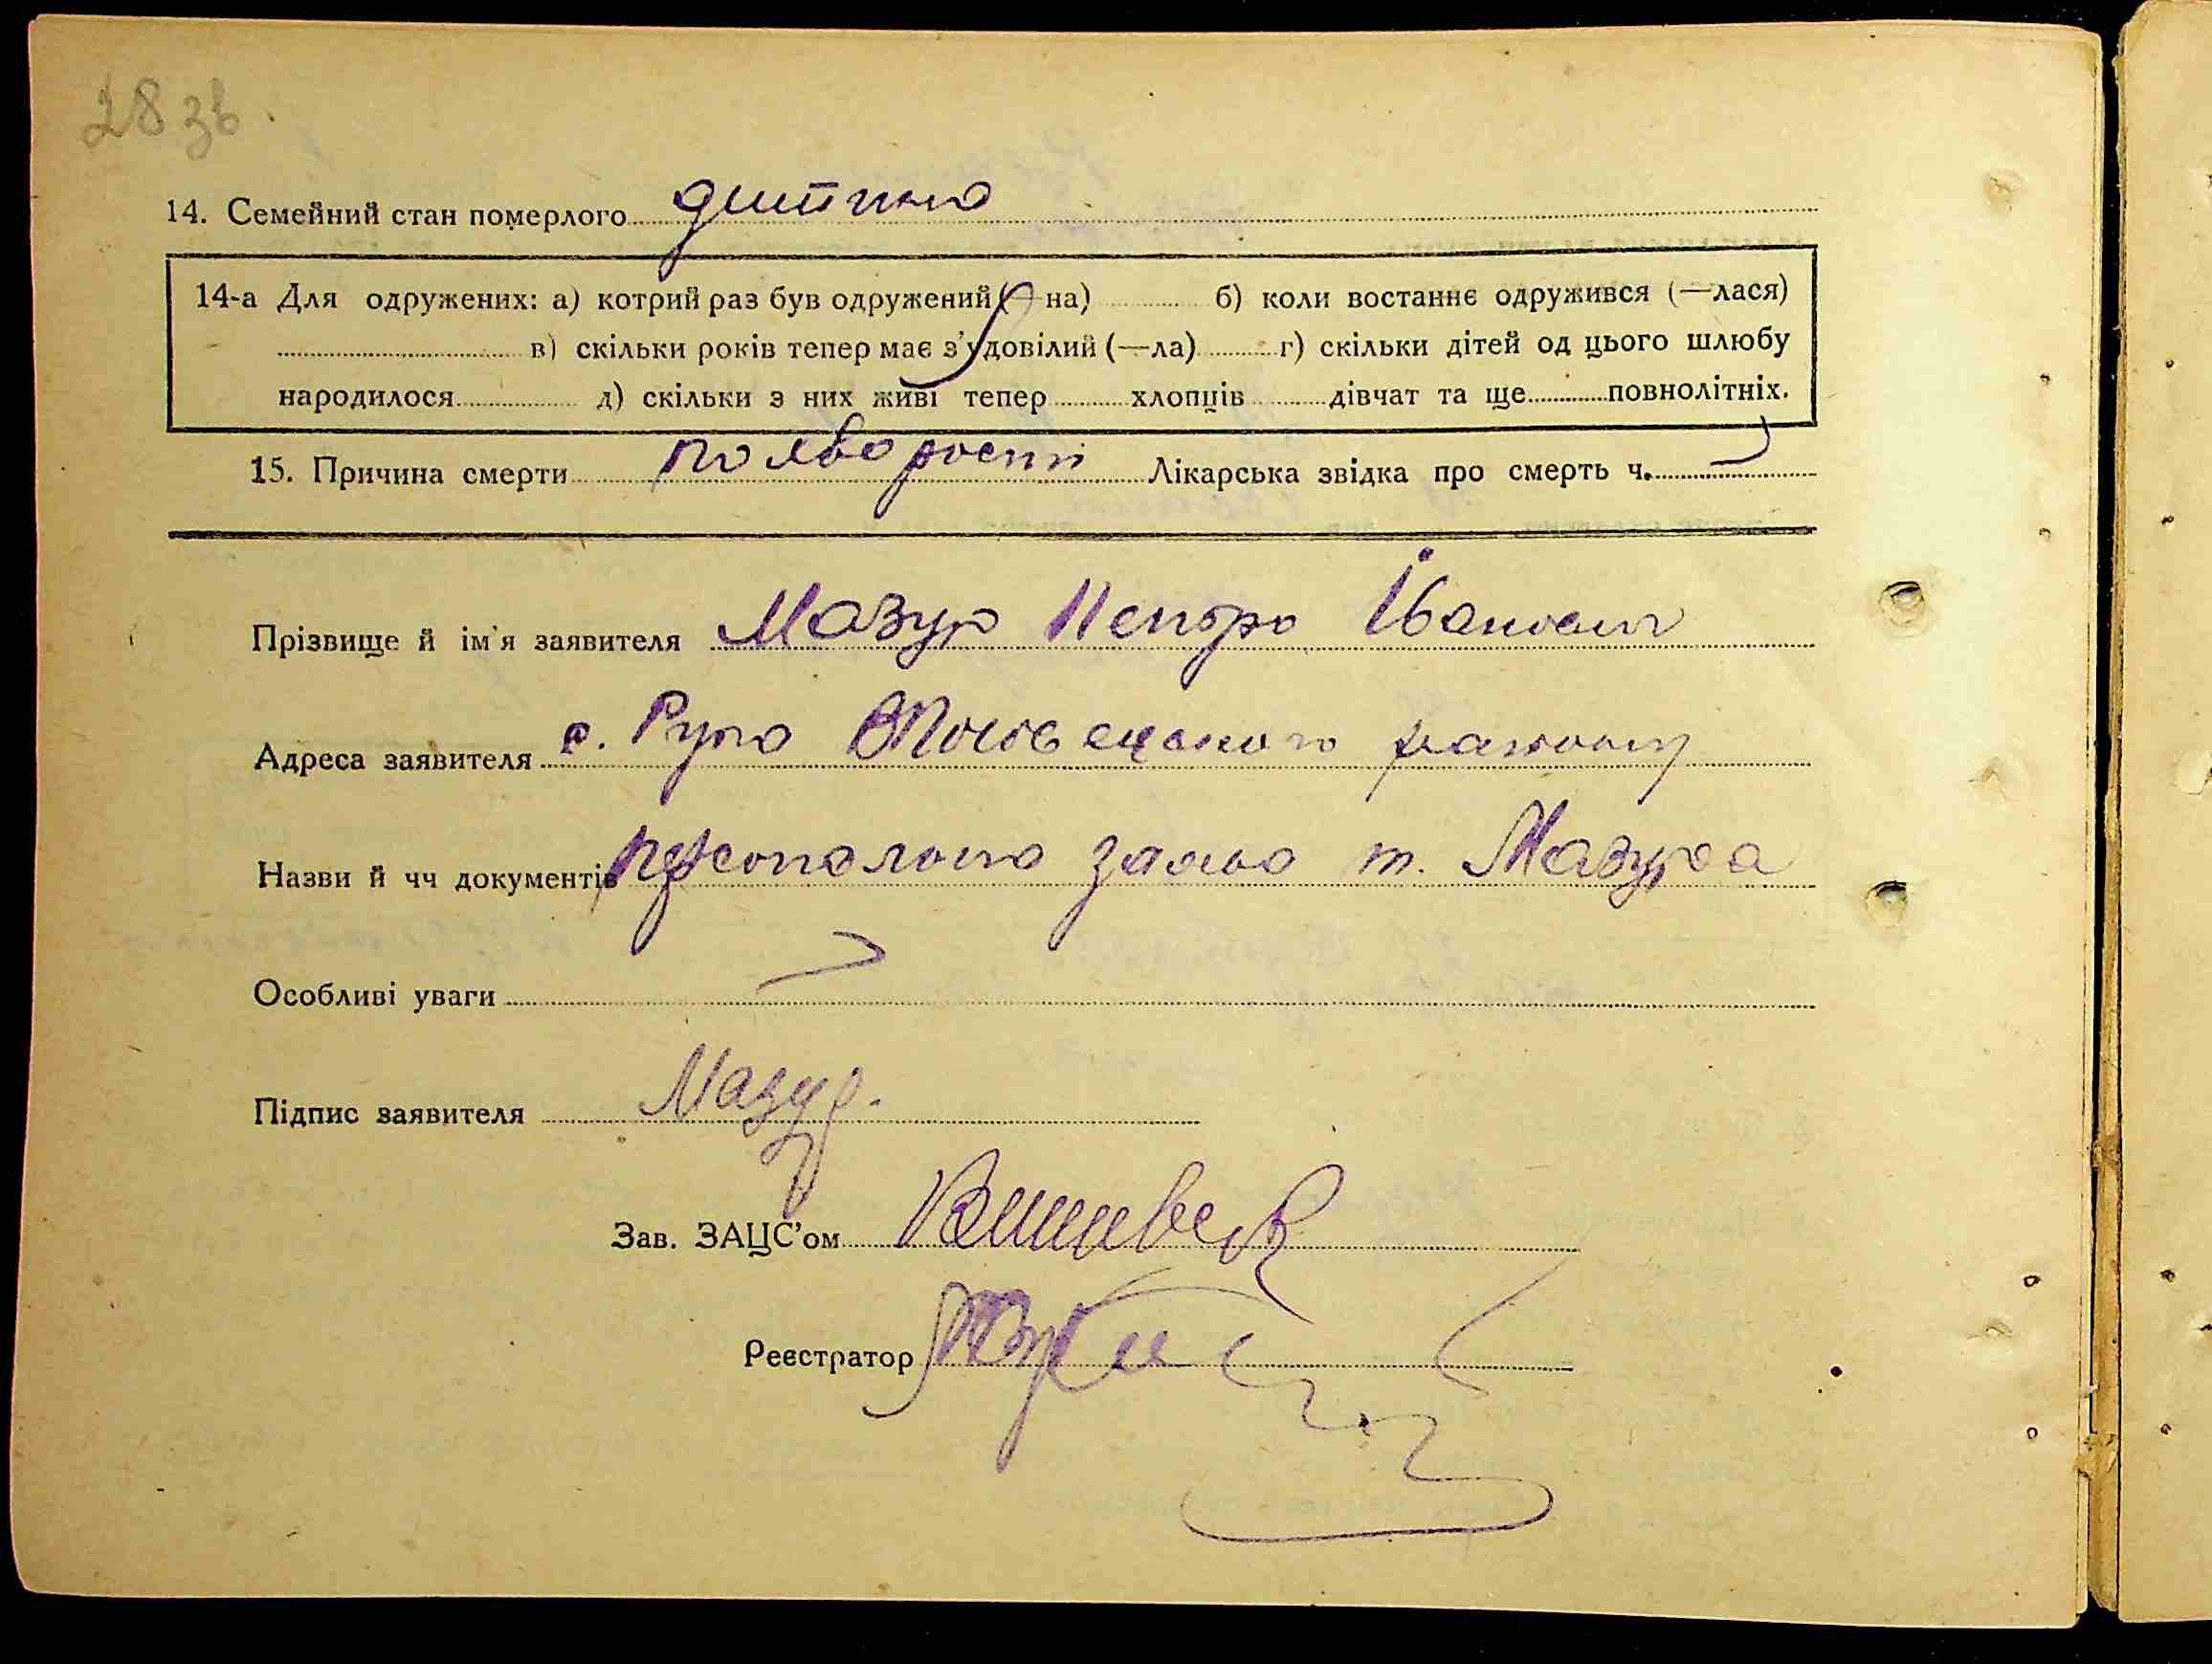 28 зв.
14. Семейний стан померлого дитина
14-а Для одружених: а) котрий раз був одружений (— на) б) коли востаннє одружився (—лася)
в) скільки років тепер має з'удовілий (—ла) г) скільки дітей од цього шлюбу
народилося д) скільки з них живі тепер хлопців дівчат та ще повнолітніх.
15. Причина смерти по хворости Лікарська звідка про смерть ч.
Прізвище й ім'я заявителя Мазур Петро Іванович
Адреса заявителя с. Руда району
Назви й чч документів персональна заява т. Мазура
Особливі уваги
Підпис заявителя Мазур.
Зав. ЗАЦС'ом
Реєстратор